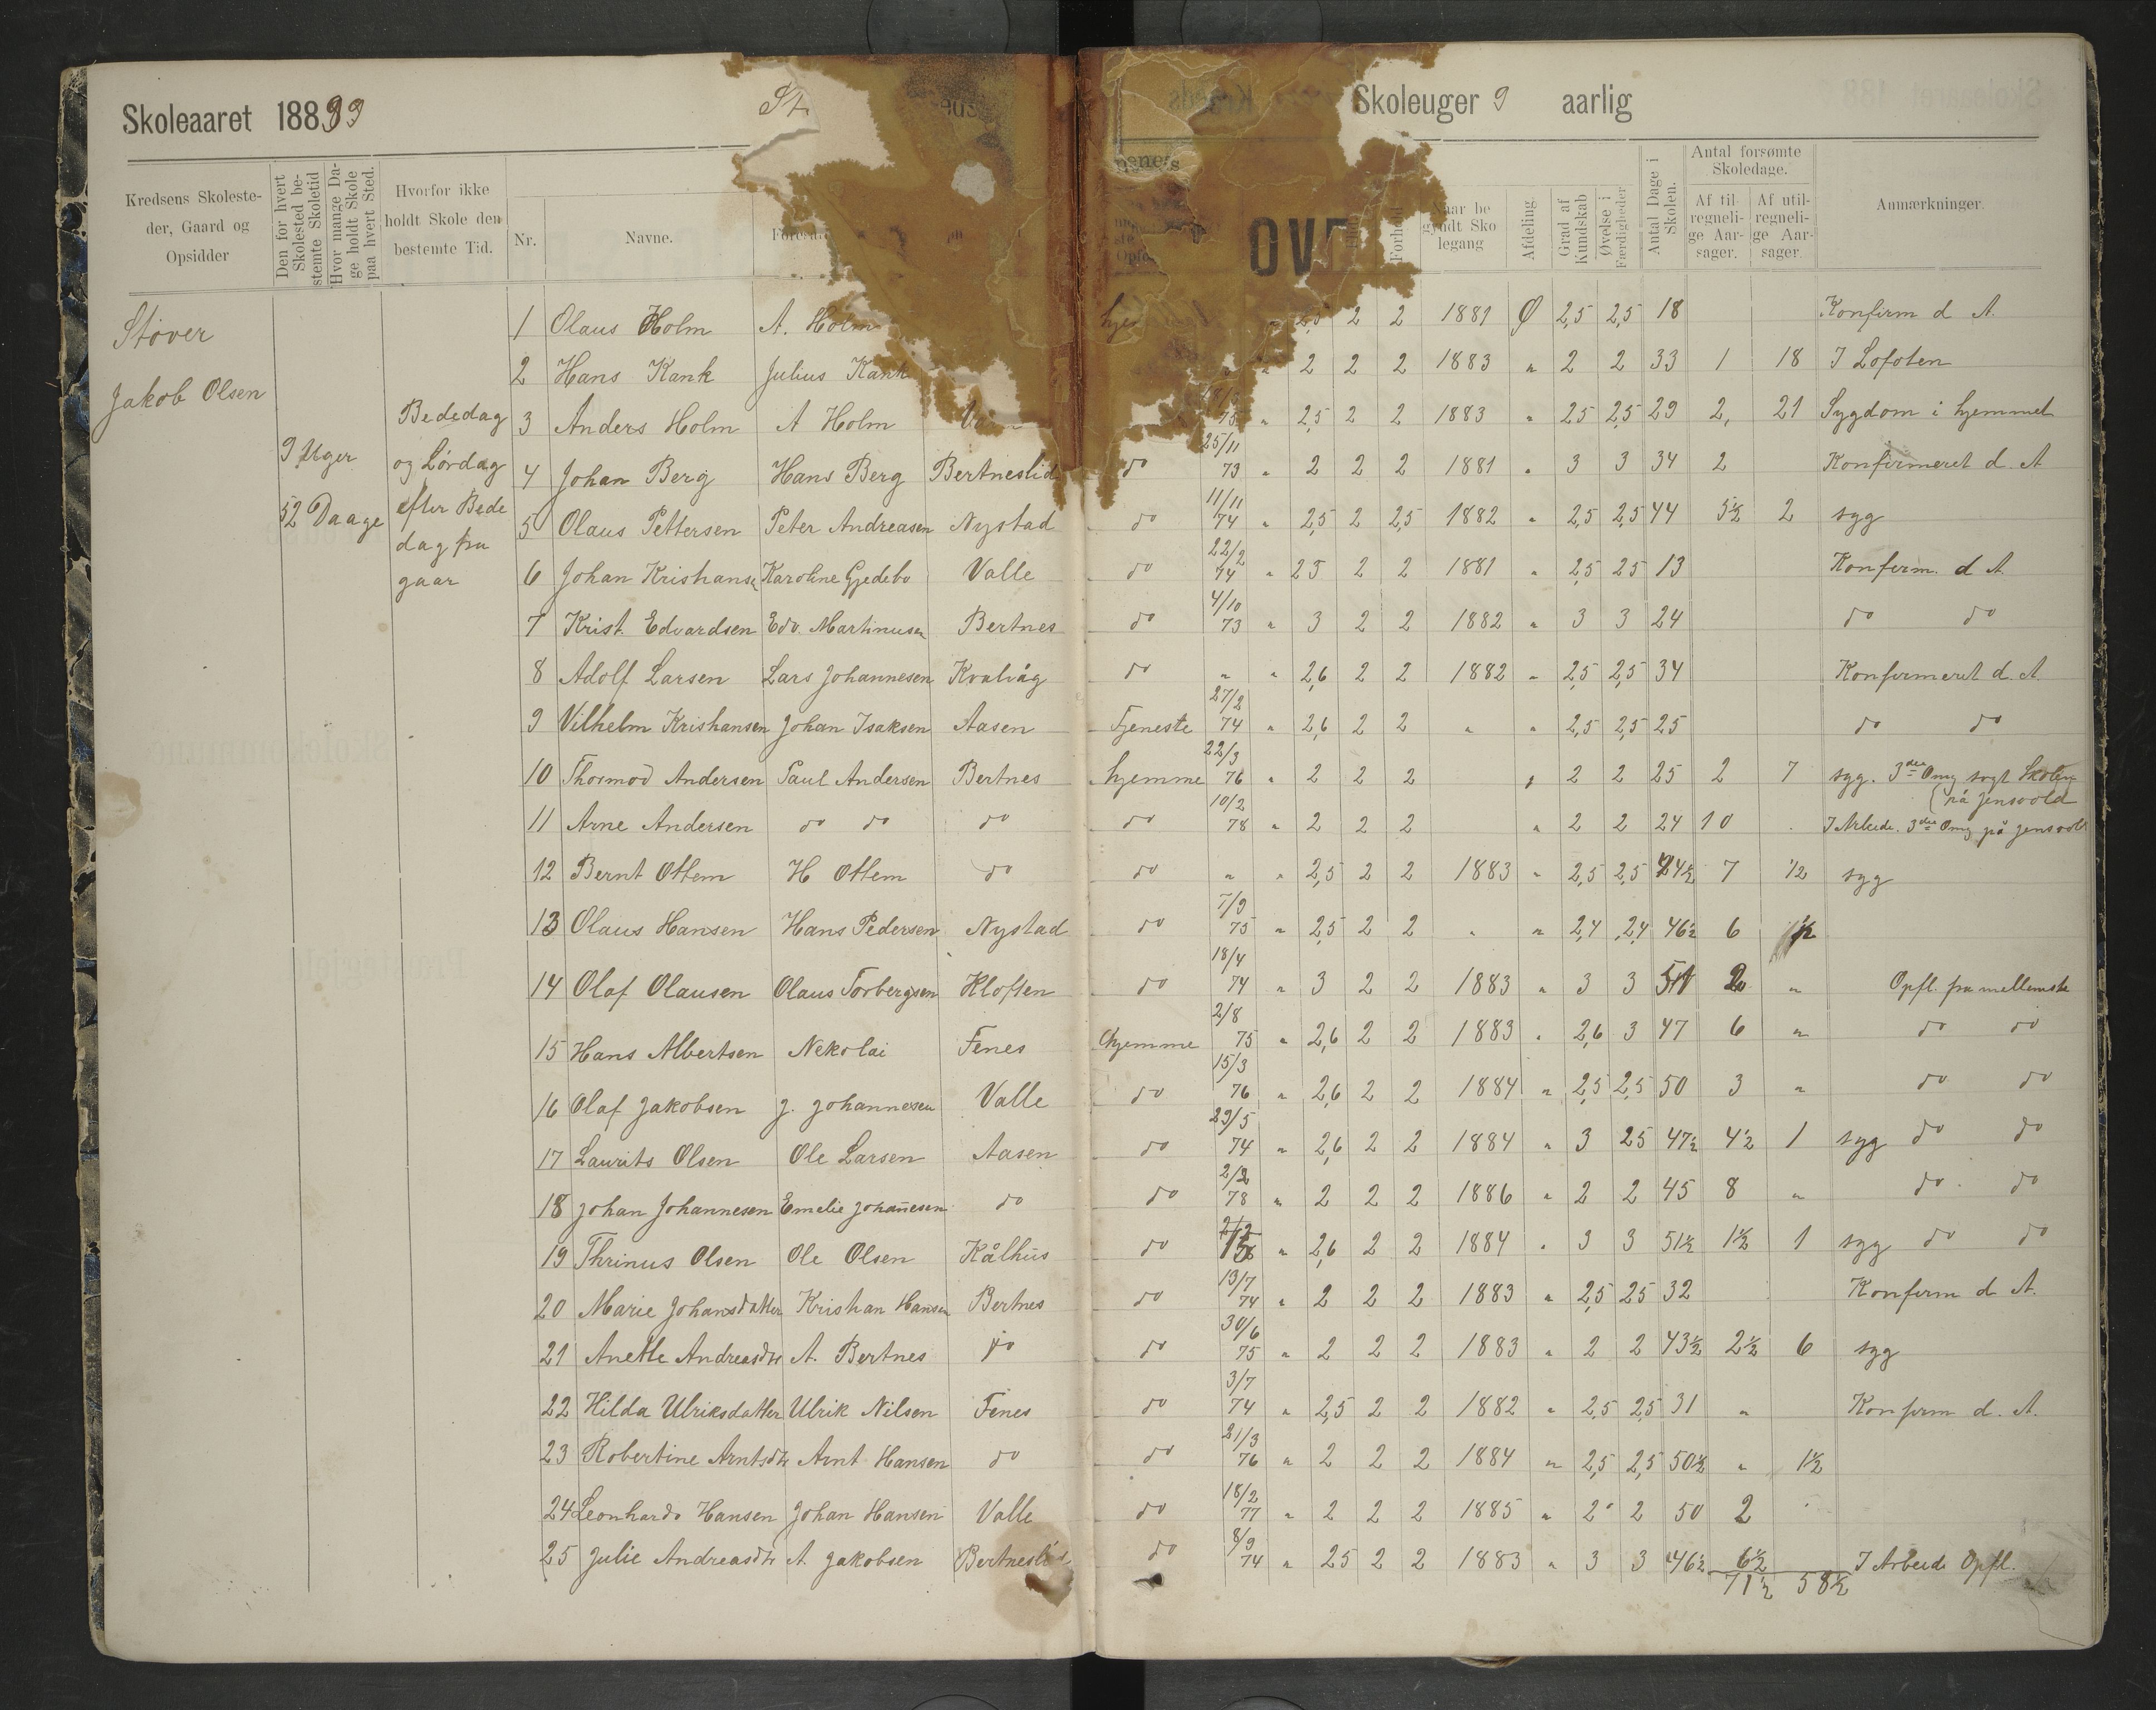 Skoleaaret 188
St
Skoleuger 9 aarlig
Kredsens Skoleste-
der, Gaard og
Opsidder
Den for hvert
Skolested be-
stemte Skoletid
Hvor mange Da-
ge holdt Skole
paa hvert Sted.
Hvorfor ikke
holdt Skole den
bestemte Tid.
Nr.
Navne.
OVE
Forhold
gyndt Sko
legang
Afdeling.
Grad af
Kundskab
Øvelse i
Færdigheder
Antal Dage i
Skolen.
Antal forsømte
Skoledage.
Af til-
regneli-
ge Aar-
sager.
Af util-
regneli-
ge Aar-
sager.
Anmærkninger.
Støver
Jakob Olsen
9 Uger
52 Daage
Bededag
og Lørdag
efter Bede
dag fra
gaar
1 Olaus Holm A. Holm 2,5 2 2 1881 Ø 2,5 2,5 18 Konfirm d A.
2 Hans Kank Julius Kank 2 2 2 1883 " 2 2 33 1 18 I Lofoten
3 Anders Holm A Holm 75 " 2,5 2 2 1883 " 25 2,5 29 2, 21 Sygdom i hjemmet
4 Johan Berg Hans Berg Bertneslid do 25/11 73 " 2 2 2 1881 " 3 3 34 2 Konfirmeret d. A
5 Olaus Pettersen Peter Andreasen Nystad do 11/11 74 " 2,5 2 2,5 1882 " 2,5 2,5 44 5½ 2 syg
6 Johan Kristianse Karoline Gjedebo Valle do 22/2 74 " 25 2 2 1881 " 2,5 25 13 Konferm. d A.
7 Krist. Edvardsen Edv. Martinusen Bertnes do 4/10 73 " 3 2 2 1882 " 3 3 24 do do
8 Adolf Larsen Lars Johannesen Kvalvåg do " " 2,6 2 2 1882 " 2,5 2,5 34 Konfermeret d. A.
9 Vilhelm Kristiansen Johan Isaksen Aasen Tjeneste 27/2 74 " 2,6 2 2 " " 2,5 2,5 25 do do
10 Thormod Andersen Paul Andersen Bertnes hjemme 22/3 76 " 2 2 2 " 2 2 25 2 7 syg. 3die Omg søgt Skolen
på Jensvold
11 Arne Andersen do do do do 10/2 78 " 2 2 2 " 2 2 24 10 I Arbeide. 3die Omg på Jensvold
12 Bernt Ottem H Ottem do do " " 2,5 2 2 1883 " 2,5 2,5 44½ 7 ½ syg
13 Olaus Hansen Hans Pedersen Nystad do 7/9 75 " 2,5 2 2 " " 2,4 2,4 46½ 6 ½
14 Olaf Olausen Olaus Torbergsen Kloften do 18/4 74 " 3 2 2 1883 " 3 3 51 2 " Opfl. fra mellemste
15 Hans Albertsen Nekolai Fenes hjemme 2/8 75 " 2,6 2 2 1883 " 2,6 3 47 6 " do do
16 Olaf Jakobsen J. Johannesen Valle do 15/3 76 " 2,6 2 2 1884 " 2,5 2,5 50 3 " do do
17 Laurits Olsen Ole Larsen Aasen do 29/5 74 " 2,6 2 2 1884 " 3 25 47½ 4½ 1 syg do do
18 Johan Johannesen Emelie Johañesen do do 2/2 78 " 2 2 2 1886 " 2 2 45 8 " do do
19 Thrinus Olsen Ole Olsen Kålhus do " 2,6 2 2 1884 " 3 3 51½ 1½ 1 syg do do
20 Marie Johansdatter Kristian Hansen Bertnes do 13/7 74 " 2 2 2 1883 " 2,5 25 32 Konferm d A.
21 Anette Andreasdtr A. Bertnes do do 30/6 75 " 2 2 2 1883 " 2 2 43½ 2½ 6 syg
22 Hilda Ulriksdatter Ulrik Nilsen Fenes do 3/7 74 " 2,5 2 2 1882 " 2,5 2,5 31 " Konferm d. A.
23 Robertine Arntsdtr Arnt Hansen do do 21/3 76 " 2 2 2 1884 " 2,5 2,5 50½ " 1½
24 Leonharda Hansen Johan Hansen Valle do 18/2 77 " 2 2 2 1885 " 2 2 50 2
25 Julie Andreasdtr A. Jakobsen Bertneslid do 8/9 74 " 25 2 2 1883 " 3 3 46½ 6½ I Arbeide Opfl.
71½ 58½